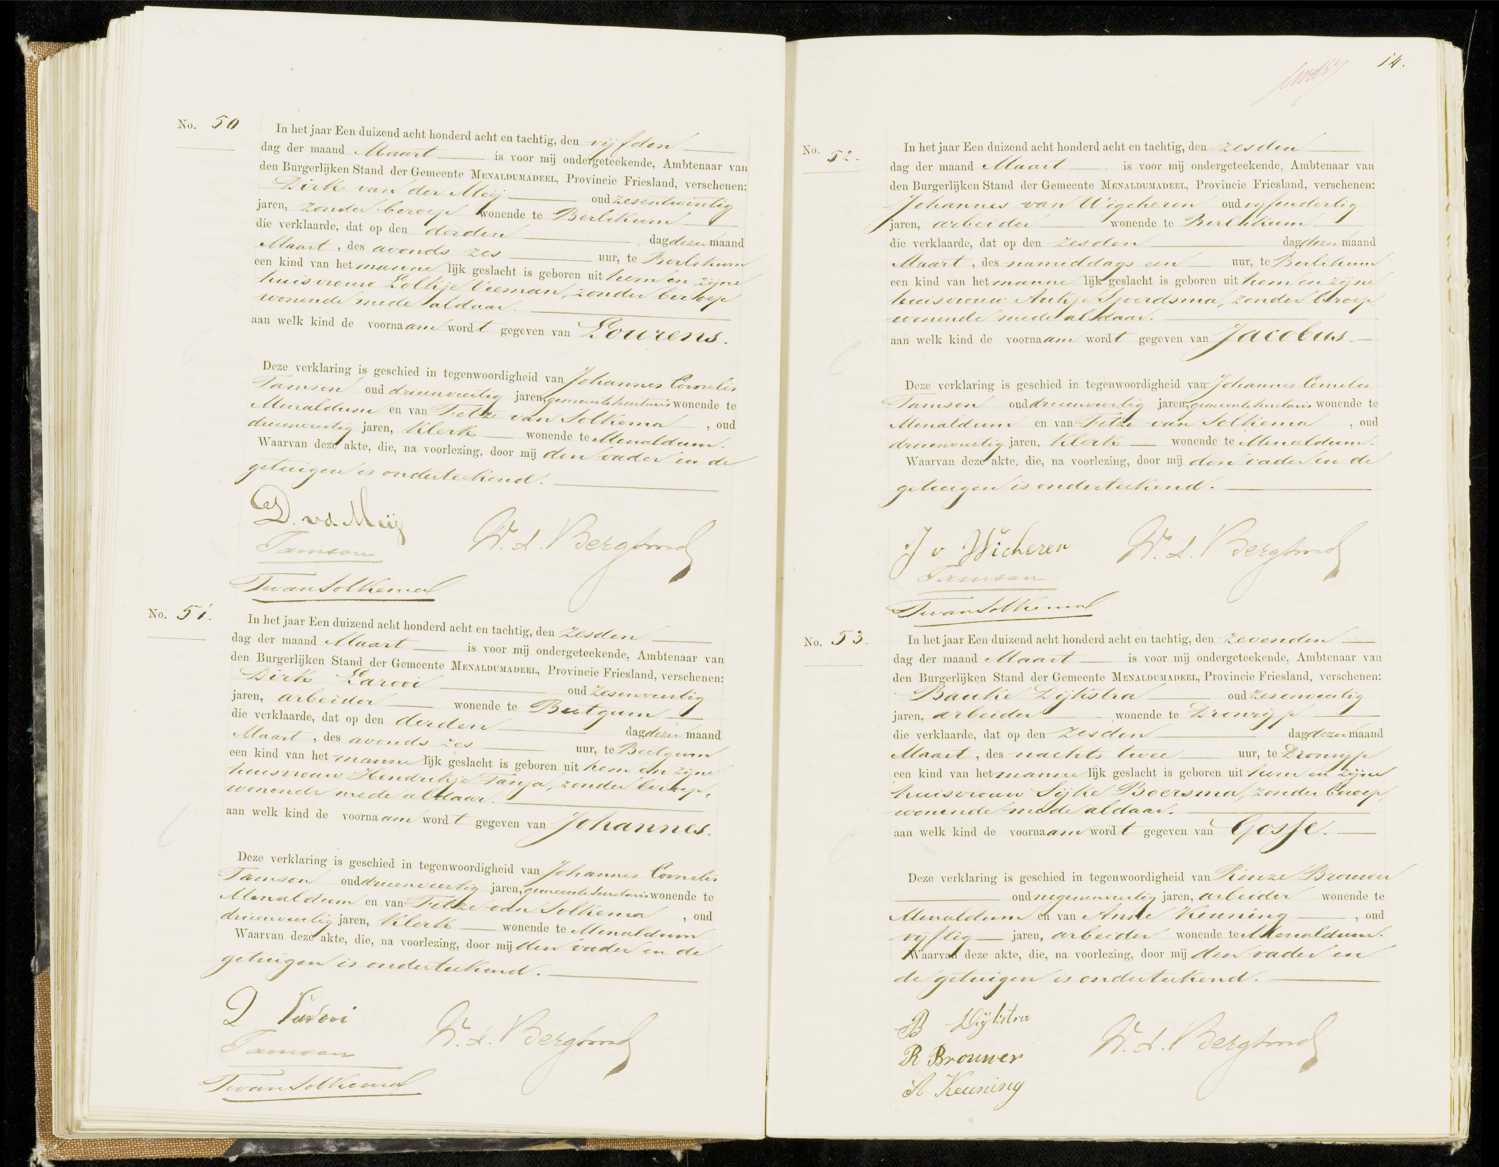 No. 50
In het jaar Een duizend acht honderd acht en tachtig, den vijfden
dag der maand Maart is voor mij ondergeteekende, Ambtenaar van
den Burgerlijken Stand der Gemeente MENALDUMADEEL, Provincie Friesland, verschenen:
Dirk van der Meij oud zesentwintig
jaren, zonder beroep wonende te Berlikum
die verklaarde, dat op den derden dag dezer maand
Maart, des avonds zes uur, te Berlikum
een kind van het manne lijk geslacht is geboren uit hem en zijne
huisvrouw Eelkje Veeman, zonder beroep
wonende mede aldaar.
aan welk kind de voornaam wordt gegeven van Lourens.
Deze verklaring is geschied in tegenwoordigheid van Johannes Cornelis
Tamson oud drieenveertig jaren, gemeentesecretaris wonende te
Menaldum en van Tietze van Solkema, oud
drieenveertig jaren, klerk wonende te Menaldum.
Waarvan deze akte, die, na voorlezing, door mij den vader en de
getuigen is onderteekend.
D. v.d. Meij
W. L. Bergh
Tamson
T van Solkema
No. 51.
In het jaar Een duizend acht honderd acht en tachtig, den zesden
dag der maand Maart is voor mij ondergeteekende, Ambtenaar van
den Burgerlijken Stand der Gemeente MENALDUMADEEL, Provincie Friesland, verschenen:
Dirk Larooi oud zesenveertig
jaren, arbeider wonende te Beetgum
die verklaarde, dat op den derden dag dezer maand
Maart, des avonds zes uur, te Beetgum
een kind van het manne lijk geslacht is geboren uit hem en zijne
huisvrouw Hendrikje Tanja, zonder beroep,
wonende mede aldaar.
aan welk kind de voornaam wordt gegeven van Johannes.
Deze verklaring is geschied in tegenwoordigheid van Johannes Cornelis
Tamson oud drieenveertig jaren, gemeentesecretaris wonende te
Menaldum en van Tietze van Solkema, oud
drieenveertig jaren, klerk wonende te Menaldum
Waarvan deze akte, die, na voorlezing, door mij den vader en de
getuigen is onderteekend.
D Larooi
W. L. Bergh
Tamson
T van Solkema
14.
No. 52.
In het jaar Een duizend acht honderd acht en tachtig, den zesden
dag der maand Maart is voor mij ondergeteekende, Ambtenaar van
den Burgerlijken Stand der Gemeente MENALDUMADEEL, Provincie Friesland, verschenen:
Johannes van Wigcheren oud vijfendertig
jaren, arbeider wonende te Berlikum
die verklaarde, dat op den zesden dag dezer maand
Maart, des nameddags een uur, te Berlikum
een kind van het manne lijk geslacht is geboren uit hem en zijne
huisvrouw Aukje Sjoerdsma, zonder beroep
wonende mede aldaar.
aan welk kind de voornaam wordt gegeven van Jacobus.
Deze verklaring is geschied in tegenwoordigheid van Johannes Cornelis
Tamson oud drieenveertig jaren, gemeentesecretaris wonende te
Menaldum en van Tietze van Solkema, oud
drieenveertig jaren, klerk wonende te Menaldum.
Waarvan deze akte, die, na voorlezing, door mij den vader en de
getuigen is onderteekend.
J v Wicheren
W. L. Bergh
Tamson
T van Solkema
No. 53.
In het jaar Een duizend acht honderd acht en tachtig, den zevenden
dag der maand Maart is voor mij ondergeteekende, Ambtenaar van
den Burgerlijken Stand der Gemeente MENALDUMADEEL, Provincie Friesland, verschenen:
Bauke Dijkstra oud zesenveertig
jaren, arbeider wonende te Dronrijp
die verklaarde, dat op den zesden dag dezer maand
Maart, des nachts twee uur, te Dronrijp
een kind van het manne lijk geslacht is geboren uit hem en zijne
huisvrouw Sijke Boersma, zonder beroep,
wonende mede aldaar.
aan welk kind de voornaam wordt gegeven van Gosse.
Deze verklaring is geschied in tegenwoordigheid van Rinze Brouwer
oud negenenveertig jaren, arbeider wonende te
Menaldum en van Anne Keuning, oud
vijftig jaren, arbeider wonende te Menaldum.
Waarvan deze akte, die, na voorlezing, door mij den vader en
de getuigen is onderteekend.
B Dijkstra
W. L. Bergh
R Brouwer
A Keuning